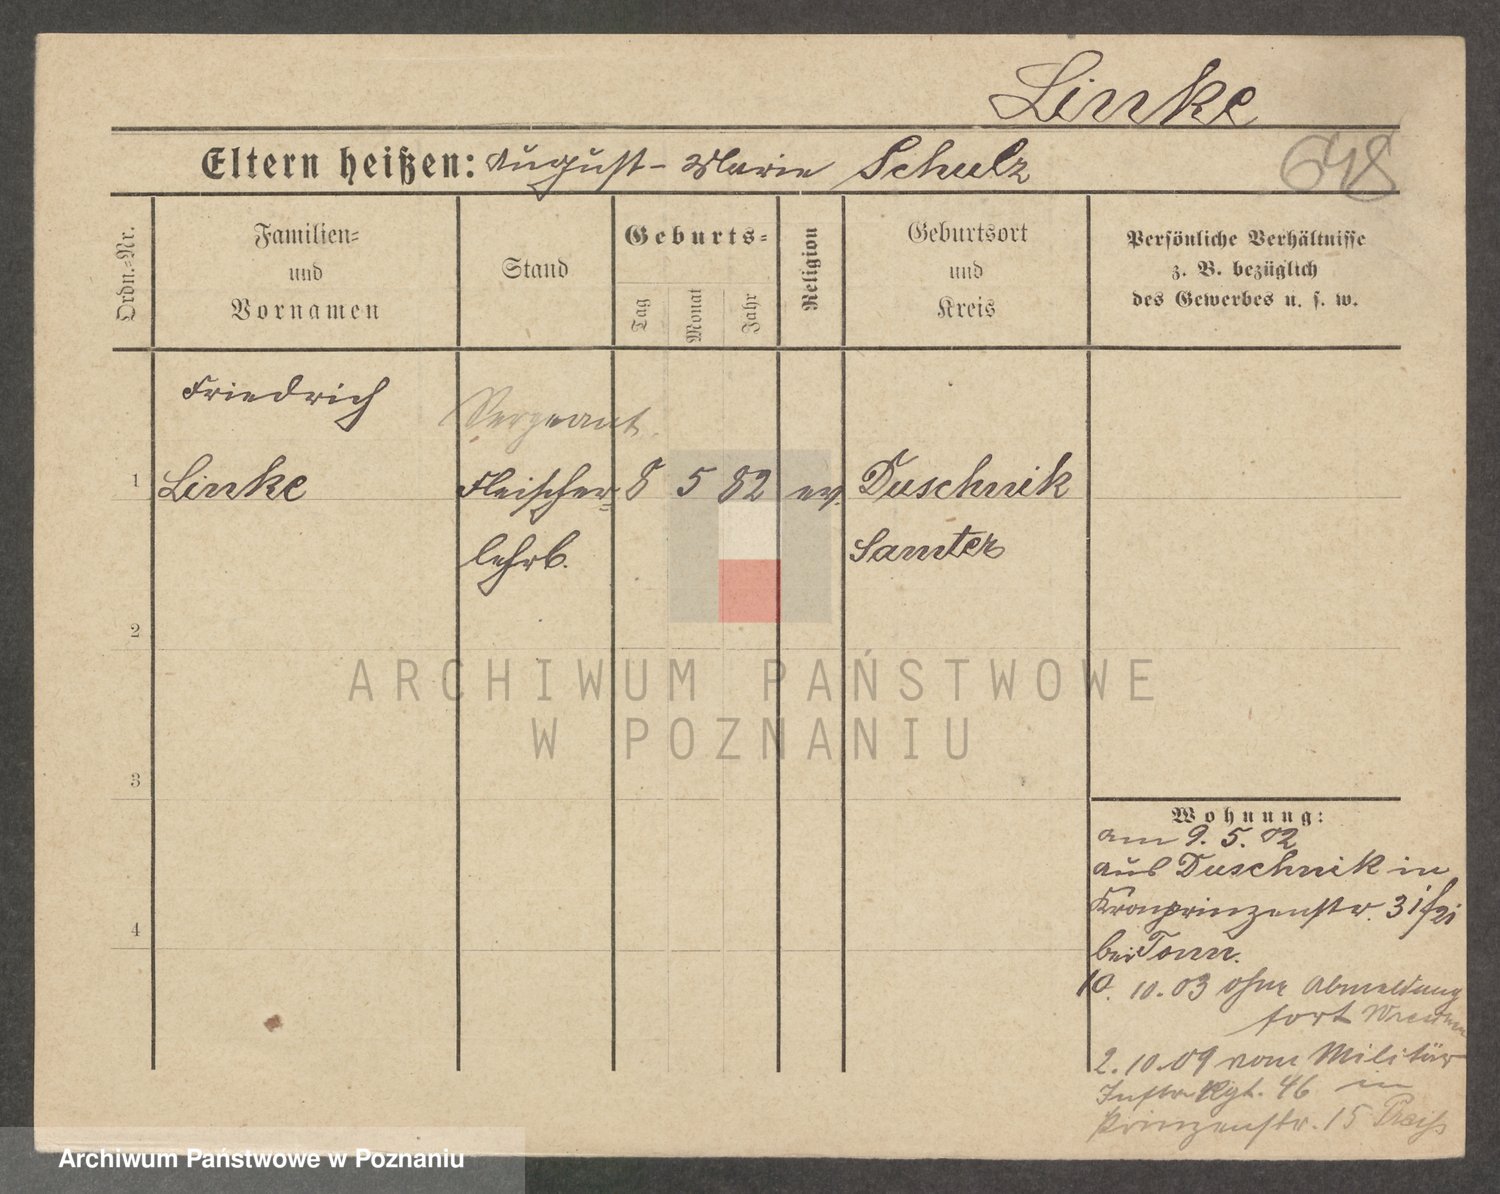 Linke
Eltern heißen: August - Marie Schulz
648
Ordn.-Nr.
Familien- und Vornamen
Stand
Geburts-
Tag
Monat
Jahr
Religion
Geburtsort und Kreis
Persönliche Verhältnisse
z. B. bezüglich
des Gewerbes u. s. w.
Friedrich
Sergeant.
1 Linke Fleischer- 8 5 82 ev. Duschnik
lehrb. Samter
2
ARCHIWUM PAŃSTWOWE
W POZNANIU
3
Wohnung:
am 9. 5. 02
aus Duschnik in
Kronprinzenstr. 31
4
bei Tonn.
10. 10. 03 ohne Abmeldung
fort
2. 10. 09 vom Militär
Inftr Rgt. 46 in
Prinzenstr. 15
Archiwum Państwowe w Poznaniu